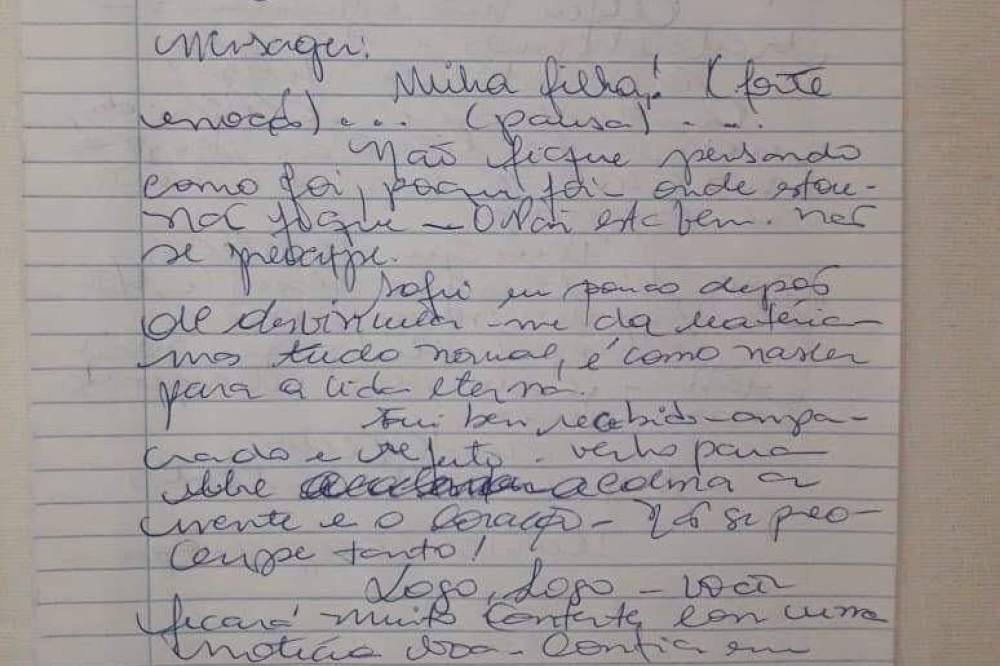 Mensagem:
Minha filha! (forte
emoção) ... (pausa) ...
Não fique pensando
como foi, porque foi onde estou -
não fique - O Pai está bem. não
se preocupe.
Sofri um pouco depois
de desvincular-me da matéria
mas tudo normal, é como nascer
para a vida eterna.
Fui bem recebido - ampa-
rado e refeito. venho para
acalma a
mente e o coração - Não se preo-
cupe tanto!
Logo, Logo - você
ficará muito contente com uma
notícia boa - Confia em